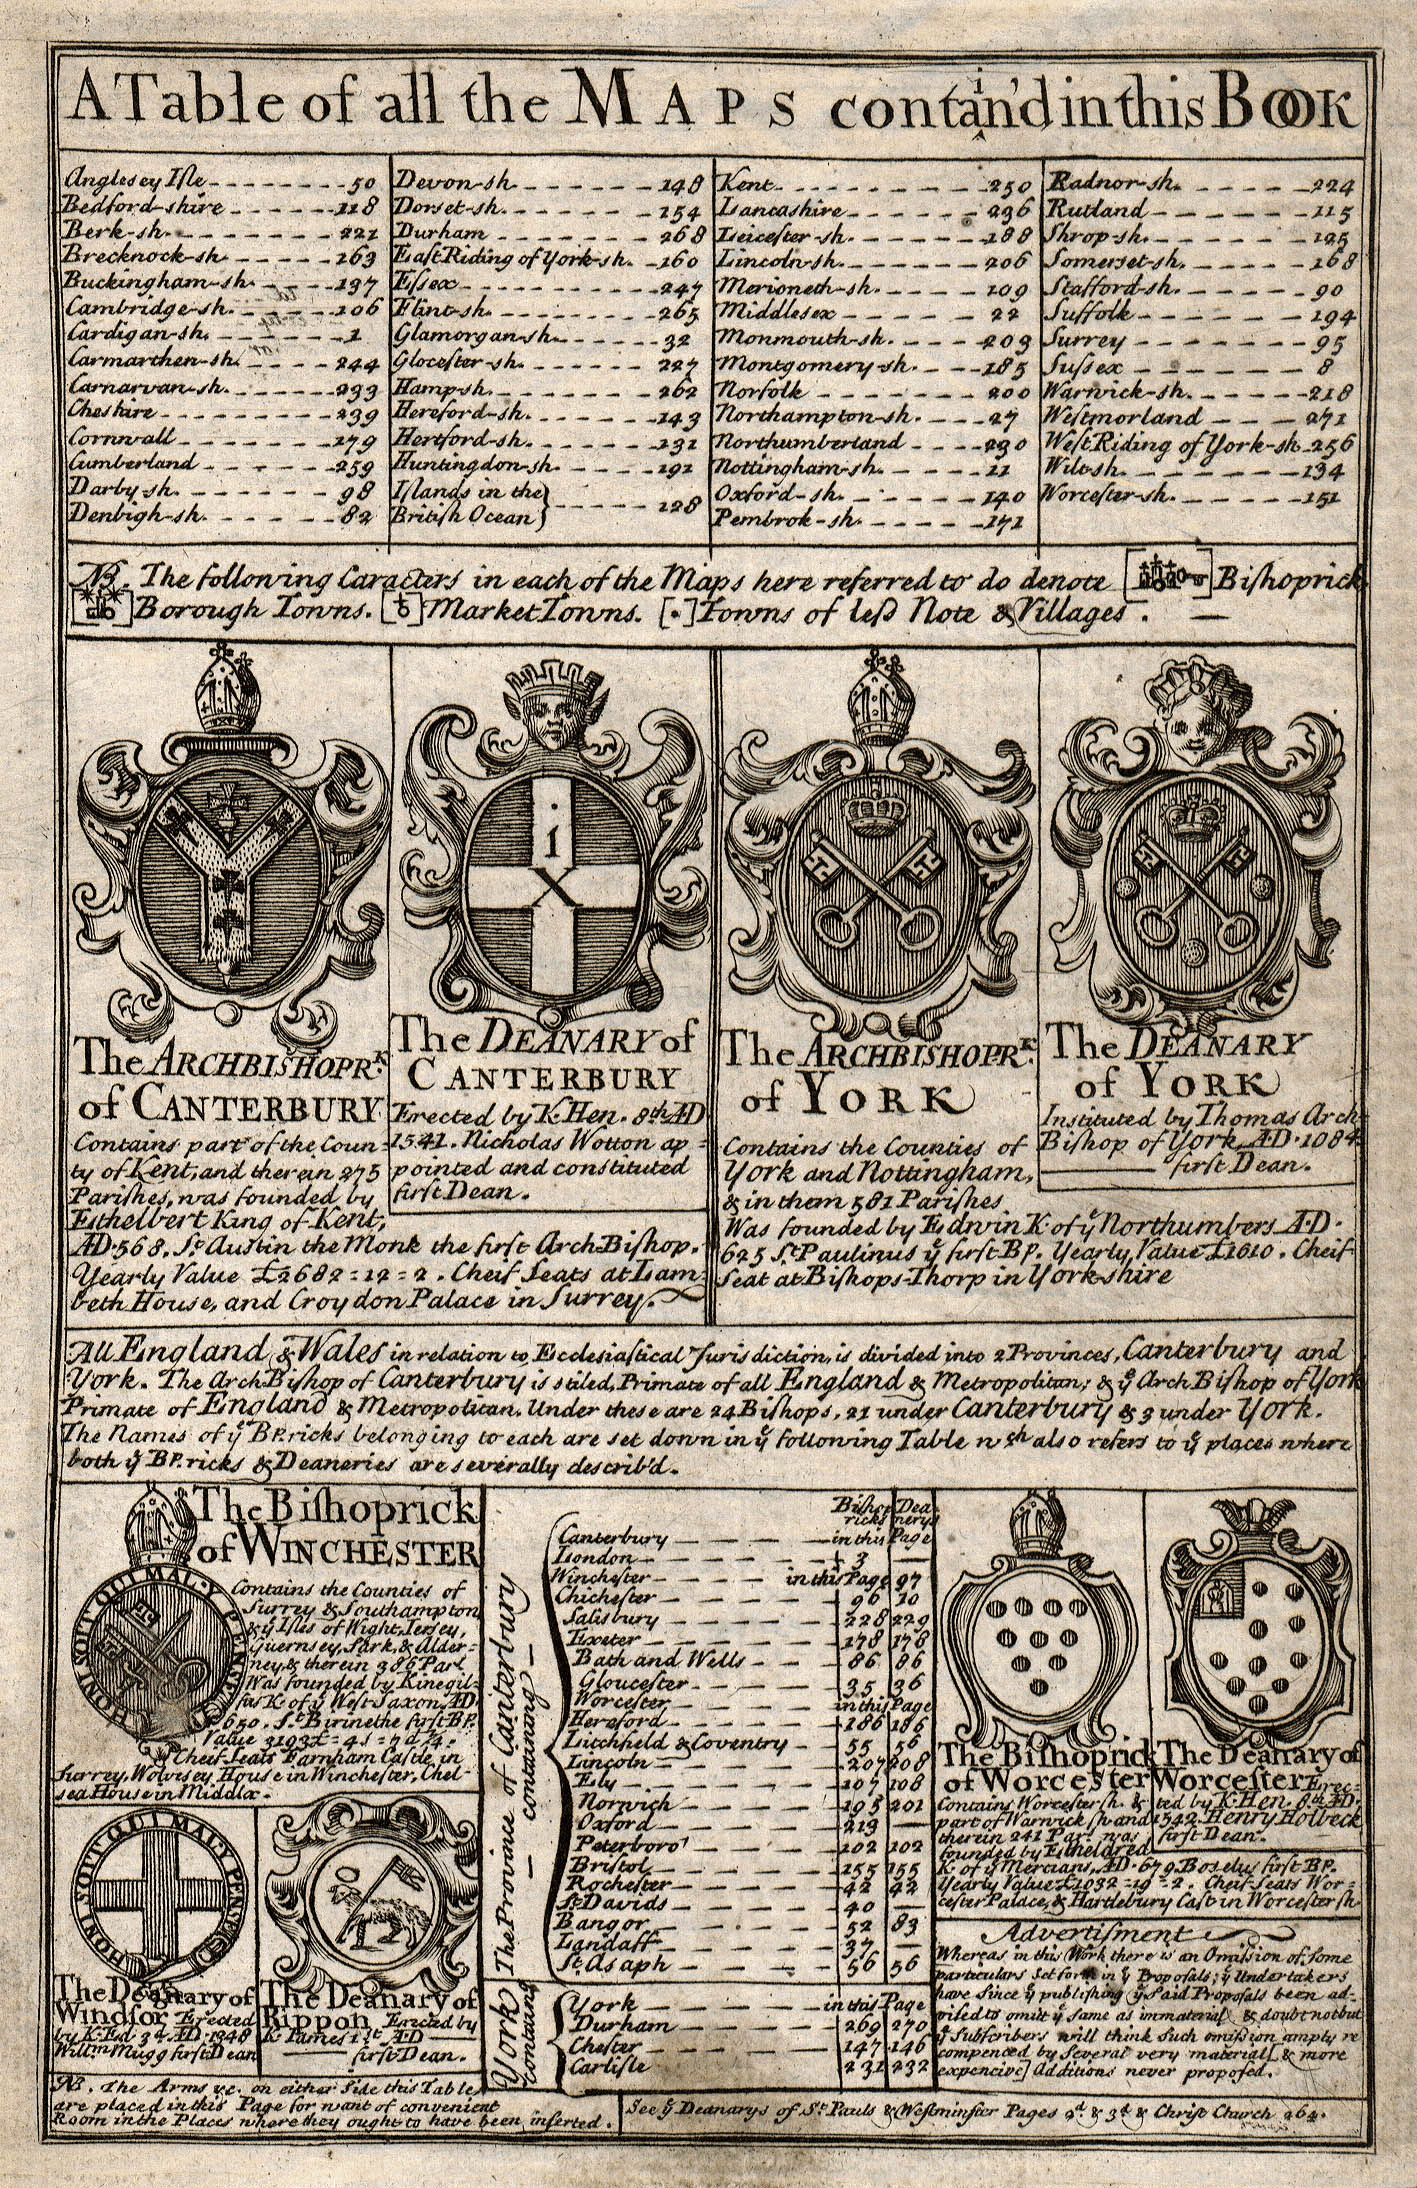 A Table of all the MAPS contain'd in this BOOK
Anglesey Isle 50
Bedford-shire 118
Berk-sh. 221
Brecknock-sh 163
Buckingham-sh. 137
Cambridge-sh. 106
Cardigan-sh. 1
Carmarthen-sh. 244
Carnarvan-sh. 233
Cheshire 239
Cornwall 179
Cumberland 259
Darby-sh. 98
Denbigh-sh. 82
Devon-sh. 148
Dorset-sh. 154
Durham 268
East Riding of York-sh. 160
Essex 247
Flint-sh. 265
Glamorgan-sh. 32
Glocester-sh. 227
Hamp-sh. 262
Hereford-sh. 143
Hertford-sh. 131
Huntingdon-sh. 191
Islands in the
British Ocean } 128
Kent 250
Lancashire 236
Leicester-sh. 188
Lincoln-sh. 206
Merioneth-sh. 109
Middlesex 22
Monmouth-sh. 203
Montgomery-sh. 185
Norfolk 200
Northampton-sh. 27
Northumberland 230
Nottingham-sh. 11
Oxford-sh. 140
Pembrok-sh. 171
Radnor-sh. 224
Rutland 115
Shrop-sh. 125
Somerset-sh. 168
Stafford-sh. 90
Suffolk 194
Surrey 95
Sussex 8
Warwick-sh. 218
Westmorland 271
West Riding of York-sh. 256
Wilt-sh. 134
Worcester-sh. 151
NB. The following Caracters in each of the Maps here referred to do denote [ ] Bishoprick
[ ] Borough Towns. [ ] Market Towns. [ ] Towns of less Note & Villages.
The ARCHBISHOPRk.
of CANTERBURY
Contains part of the Coun=
ty of Kent, and therein 275
Parishes, was founded by
Ethelbert King of Kent,
AD. 568. St. Austin the Monk the first Arch-Bishop.
Yearly Value £2682=12=2. Cheif Seats at Lam=
beth House, and Croydon Palace in Surrey.
i
X
The DEANARY of
CANTERBURY
Erected by K. Hen. 8th. AD
1541. Nicholas Wotton ap=
pointed and constituted
first Dean.
The ARCHBISHOPRk.
of YORK
Contains the Counties of
York and Nottingham,
& in them 581 Parishes.
Was founded by Edwin K. of ye Northumbers A.D.
625 St. Paulinus ye first BP. Yearly Value £1610. Cheif
Seat at Bishops-Thorp in York-shire
The DEANARY
of YORK
Instituted by Thomas Arch-
Bishop of York AD. 1084.
first Dean.
All England & Wales in relation to Ecclesiastical Jurisdiction, is divided into 2 Provinces, Canterbury and
York. The Arch Bishop of Canterbury is stiled, Primate of all England & Metropolitan; & ye Arch Bishop of York
Primate of England & Metropolitan. Under these are 24 Bishops, 21 under Canterbury & 3 under York.
The Names of ye BP.ricks belonging to each are set down in ye following Table wch also refers to ye places where
both ye BP.ricks & Deaneries are severally describ'd.
The Bishoprick
of WINCHESTER
HONI SOIT QUI MAL Y PENSE
Contains the Counties of
Surrey & Southampton
& ye Isles of Wight, Jersey,
Guernsey, Sark, & Alder=
ney, & therein 386 Par.
Was founded by Kinegil=
sus K. of ye West-Saxon AD.
650. St. Birine the first BP.
Value 3193£=4s=7d¼=
Cheif Seats Farnham Castle in
Surrey, Wolvesey House in Winchester, Chel-
sea House in Middlx.
HONI SOIT QUI MAL Y PENSE
The Deanary of
Windsor Erected
by K. Ed. 3d. AD. 1348
Willm Mugg first Dean
The Deanary of
Rippon Erected by
K. James 1st. AD
first Dean.
The Province of Canterbury
containing
Bishopricks Deanerys
Canterbury in this Page
London 3
Winchester in this Page 97
Chichester 96 10
Salisbury 228 229
Exeter 178 178
Bath and Wells 86 86
Gloucester 35 36
Worcester in this Page
Hereford 186 186
Litchfield & Coventry 55 56
Lincoln 207 208
Ely 107 108
Norwich 195 201
Oxford 213
Peterboro' 102 102
Bristol 155 155
Rochester 42 42
St. Davids 40
Bangor 52 83
Landaff 37
St. Asaph 56 56
York
containing
York in this Page
Durham 269 270
Chester 147 146
Carlisle 231 232
The Bishoprick
of Worcester
Contains Worcester-sh. &
part of Warwick sh and
therein 241 Par. was
founded by Etheldred
K. of ye Mercians, AD. 679. Boselus first BP.
Yearly Value £1032=19=2. Cheif Seats Wor=
cester Palace, & Hartlebury Cast in Worcester sh
The Deanary of
Worcester Erec=
ted by K. Hen. 8th. AD.
1542. Henry Holbeck
first Dean.
Advertisment
Whereas in this Work there is an Omission of some
particulars set forth in ye Proposals; ye Undertakers
have since ye publishing ye said Proposals been ad-
vised to omit ye same as immaterial & doubt not but
ye Subscribers will think such omission amply re
compenced by several very material [& more
expencive] additions never proposed.
NB. The Arms &c. on either Side this Table
are placed in this Page for want of convenient
Room in the Places where they ought to have been inserted.
See ye Deanarys of St. Pauls & Westminster Pages 2d. & 3d & Christ Church 264.